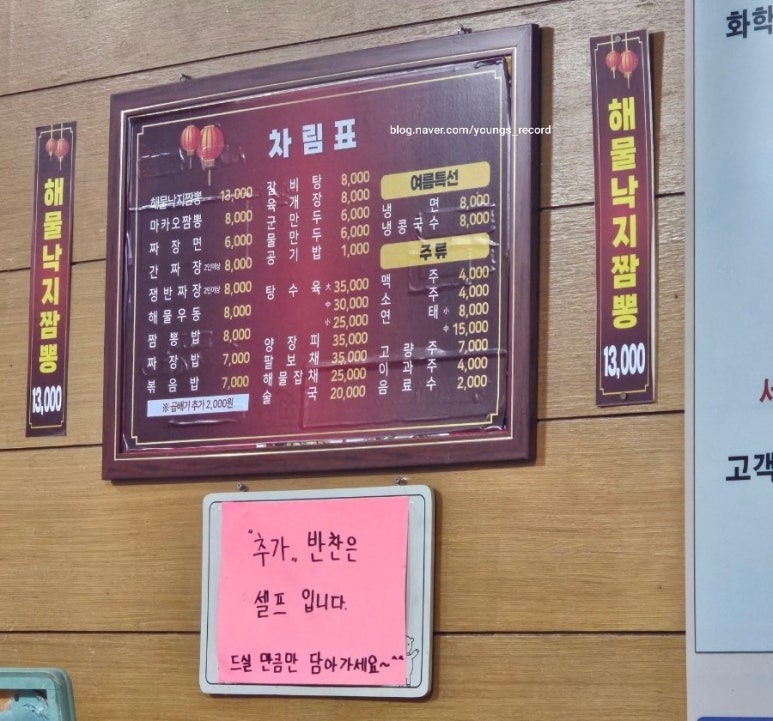 화학
해물낙지짬뽕
13,000
차림표
blog.naver.com/youngs_record
해물낙지짬뽕 13,000
마카오짬뽕 8,000
짜장면 6,000
간짜장 2인이상 8,000
쟁반짜장 2인이상 8,000
해물우동 8,000
짬뽕밥 8,000
짜장밥 7,000
볶음밥 7,000
※ 곱배기 추가 2,000원
갈비탕 8,000
육개장 8,000
군만두 6,000
물만두 6,000
공기밥 1,000
탕수육 大 35,000
中 30,000
小 25,000
양장피 35,000
팔보채 35,000
해물잡채 25,000
술국 20,000
여름특선
냉면 8,000
냉콩국수 8,000
주류
맥주 4,000
소주 4,000
연태 小 8,000
中 15,000
고량주 7,000
이과주 4,000
음료수 2,000
해물낙지짬뽕
13,000
"추가" 반찬은
셀프 입니다.
드실 만큼만 담아가세요~^^
고객